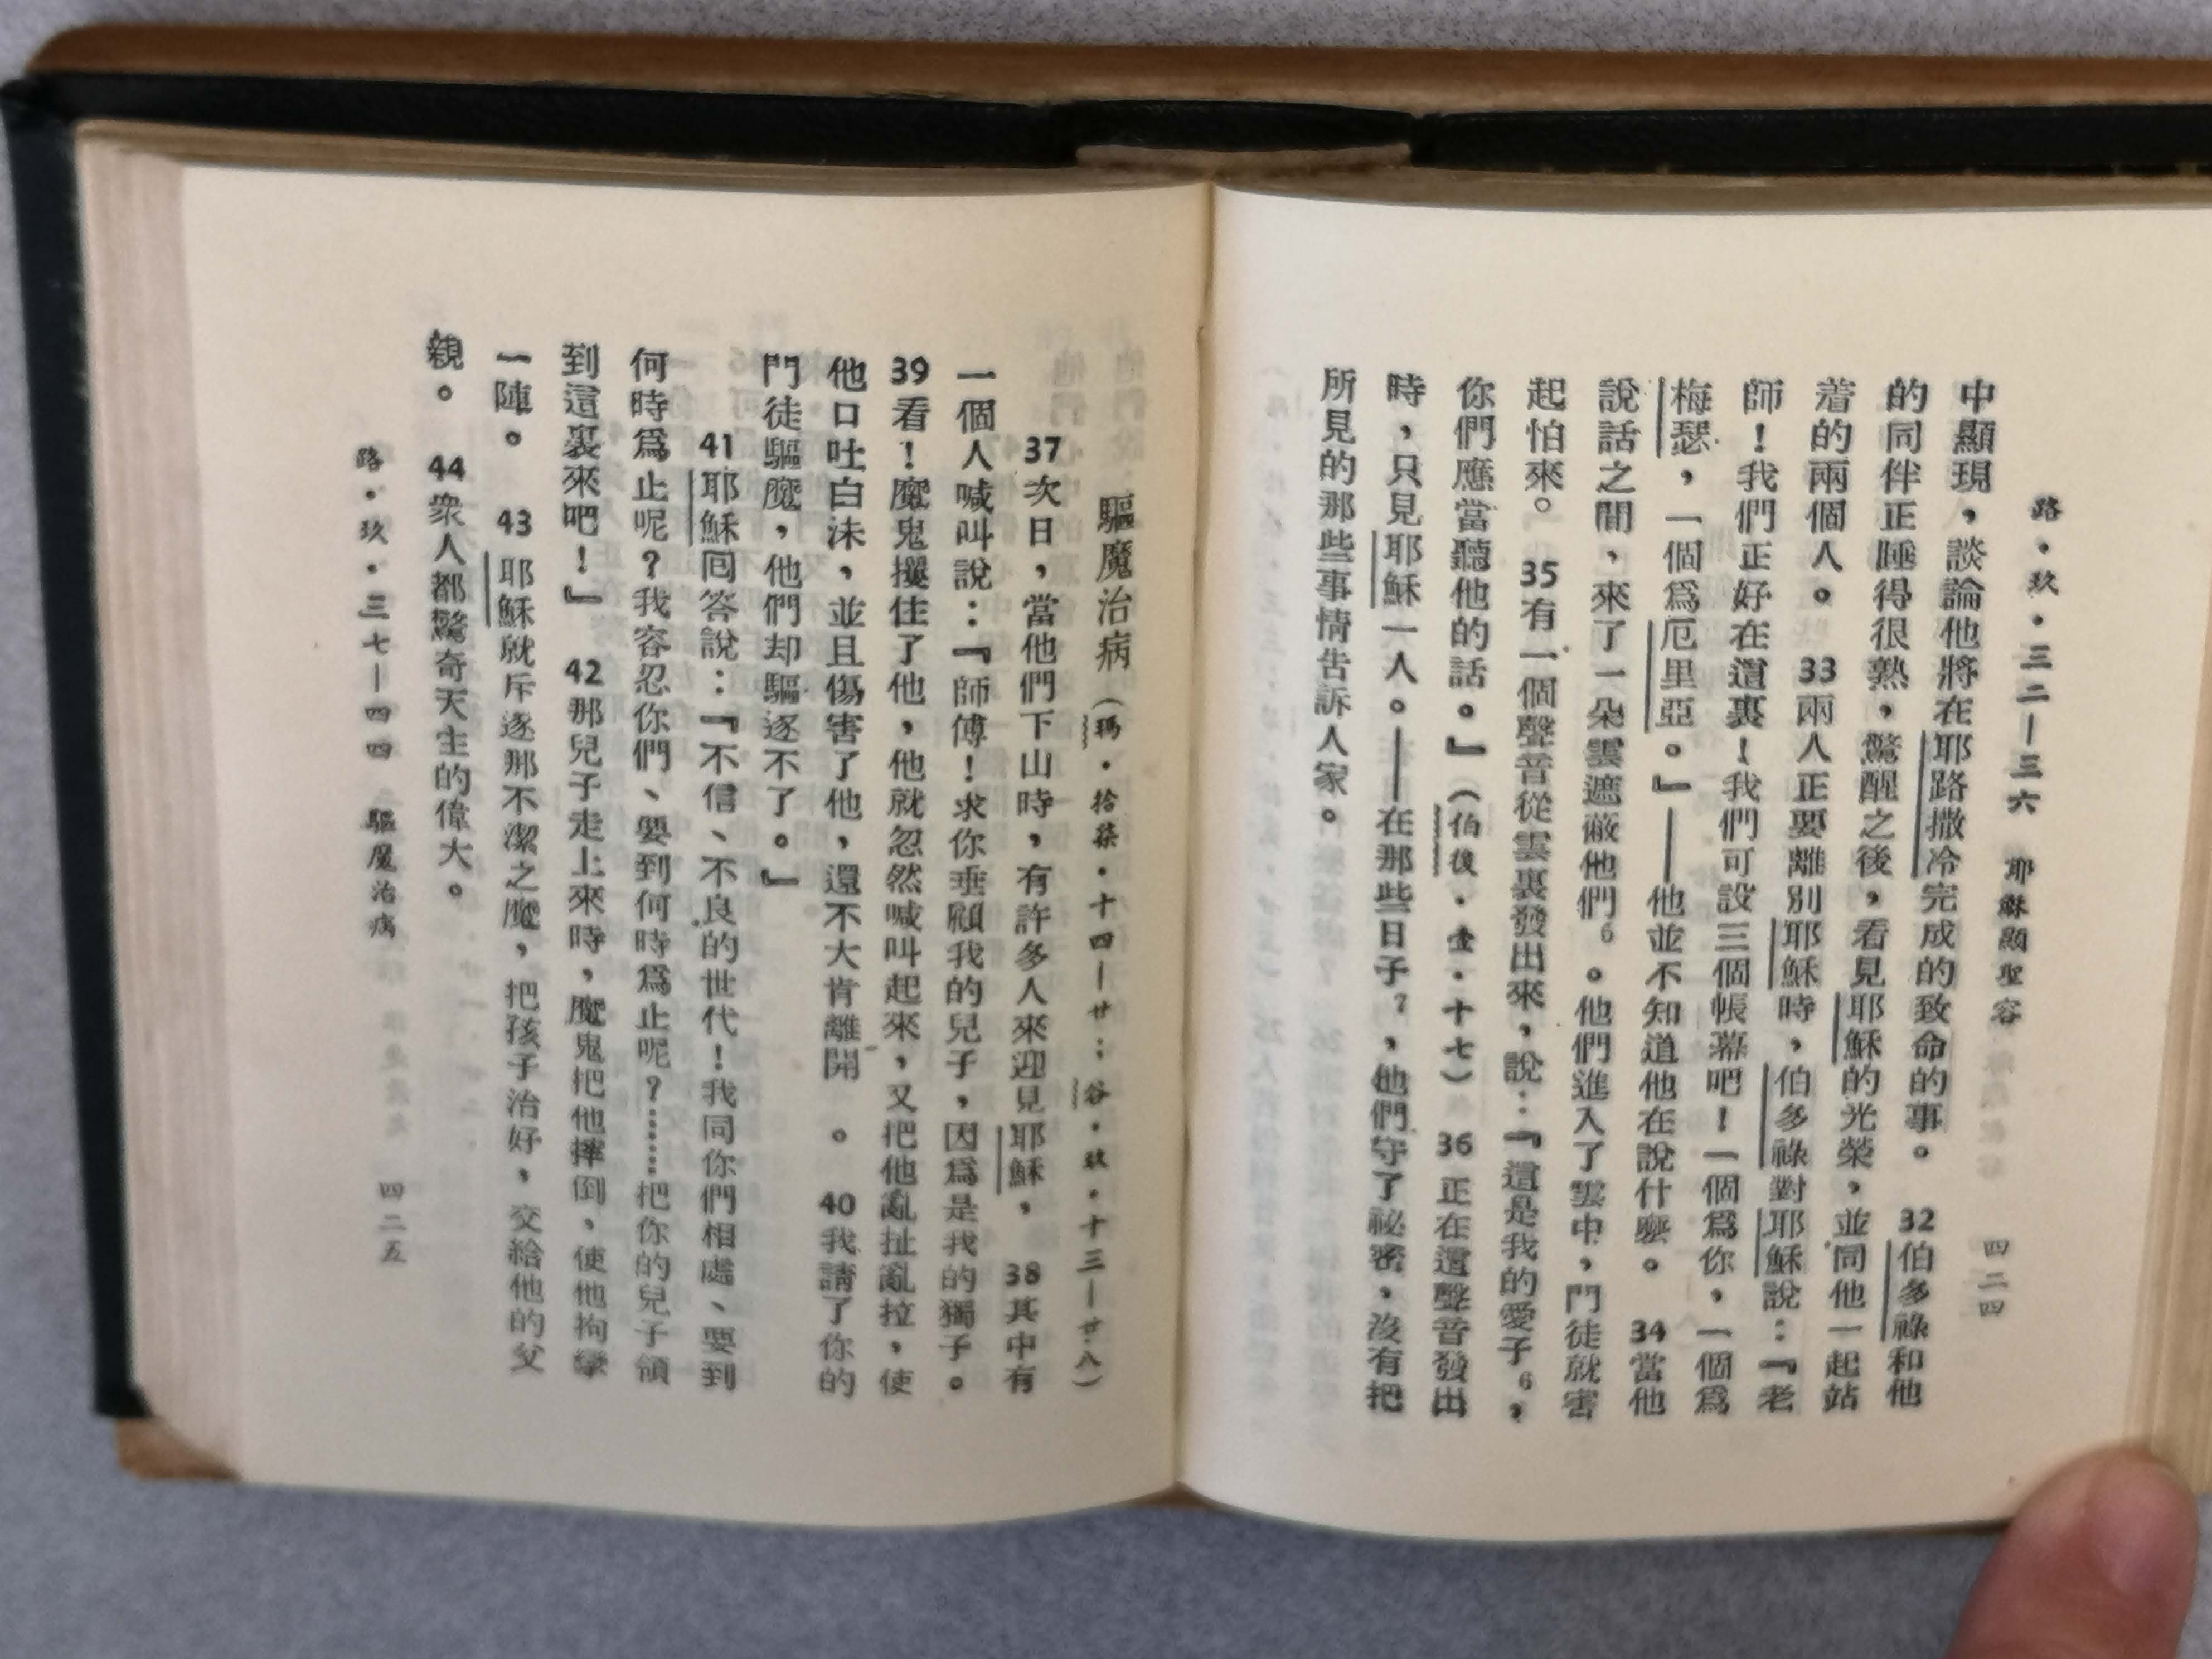 路・玖・三二—三六　耶穌顯聖容　四二四
中顯現，談論他將在耶路撒冷完成的致命的事。　32伯多祿和他
的同伴正睡得很熟，驚醒之後，看見耶穌的光榮，並同他一起站
着的兩個人。　33兩人正要離別耶穌時，伯多祿對耶穌說：『老
師！我們正好在這裏！我們可設三個帳幕吧！一個爲你，一個爲
梅瑟，一個爲厄里亞。』——他並不知道他在說什麼。　34當他
說話之間，來了一朵雲遮蔽他們6。他們進入了雲中，門徒就害
起怕來。　35有一個聲音從雲裏發出來，說：『這是我的愛子6，
你們應當聽他的話。』（伯後・壹・十七）　36正在這聲音發出
時，只見耶穌一人。——在那些日子7，他們守了祕密，沒有把
所見的那些事情告訴人家。
驅魔治病（瑪・拾柒・十四—廿；谷・玖・十三—廿八）
37次日，當他們下山時，有許多人來迎見耶穌，　38其中有
一個人喊叫說：『師傅！求你垂顧我的兒子，因爲是我的獨子。
39看！魔鬼攫住了他，他就忽然喊叫起來，又把他亂扯亂拉，使
他口吐白沫，並且傷害了他，還不大肯離開　。　40我請了你的
門徒驅魔，他們却驅逐不了。』
41耶穌囘答說：『不信、不良的世代！我同你們相處、要到
何時爲止呢？我容忍你們、要到何時爲止呢？……把你的兒子領
到這裏來吧！』　42那兒子走上來時，魔鬼把他摔倒，使他拘攣
一陣。　43耶穌就斥逐那不潔之魔，把孩子治好，交給他的父
親。　44衆人都驚奇天主的偉大。
路・玖・三七—四四　驅魔治病　四二五